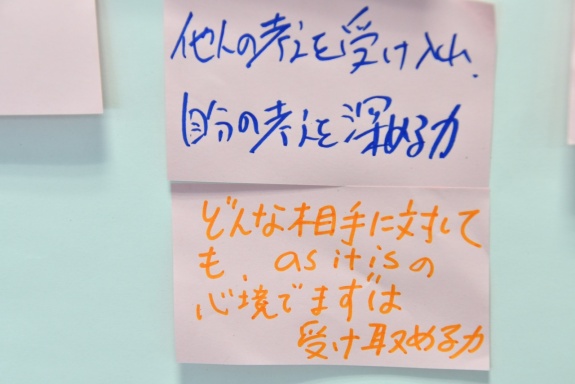 他人の考えを受け入れ、
自分の考えを深める力
どんな相手に対して
も、as it isの
心境でまずは
受け取める力